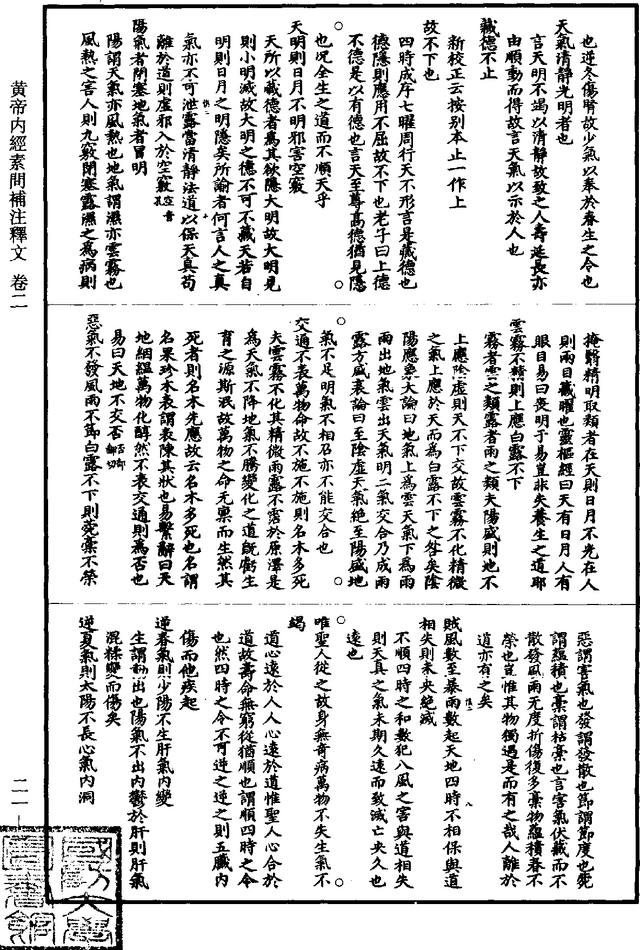 也逆冬傷腎故少氣以奉於春生之令也
天氣清靜光明者也
言天明不竭以清靜故致之人壽延長亦
由順動而得故言天氣以示於人也
藏德不止
新校正云按别本止一作上
故不下也
四時成序七曜周行天不形言是藏德也
德隱則應用不屈故不下也老子曰上德
不德是以有德也言天至尊高德猶見隱
也况全生之道而不順天乎
天明則日月不明邪害空竅
天所以藏德者爲其欲隱大明故大明見
則小明滅故大明之德不可不藏天若自
明則日月之明隱矣所諭者何言人之真
氣亦不可泄露當清靜法道以保天真苟
離於道則虛邪入於空竅
陽氣者閉塞地氣者冒明
陽謂天氣亦風熱也地氣謂濕亦雲霧也
風熱之害人則九竅閉塞霧濕之爲病則
掩翳精明取類者在天則日月不光在人
則兩目藏曜也靈樞經曰天有日月人有
眼目易曰喪明于易豈非失養生之道耶
雲霧不精則上應白露不下
霧者雲之類露者雨之類夫陽盛則地不
上應陰虛則天不下交故雲霧不化精微
之氣上應於天而爲白露不下之咎矣陰
陽應象大論曰地氣上爲雲天氣下爲雨
雨出地氣雲出天氣明二氣交合乃成雨
露方盛衰論曰至陰虛天氣絶至陽盛地
氣不足明氣不相召亦不能交合也
交通不表萬物命故不施不施則名木多死
夫雲霧不化其精微雨露不霑於原澤是
爲天氣不降地氣不騰變化之道既虧生
育之源斯泯故萬物之命无禀而生然其
死者則名木先應故云名木多死也名謂
名果珍木表謂表陳其狀也易繫辭曰天
地絪縕萬物化醇然不表交通則爲否也
易曰天地不交否
惡氣不發風雨不節白露不下則菀槀不榮
惡謂害氣也發謂發散也節謂節度也菀
謂蘊積也槀謂枯槀也言害氣伏藏而不
散發風雨无度折傷復多槀物蘊積春不
榮也豈惟其物獨遇是而有之哉人離於
道亦有之矣
賊風數至暴雨數起天地四時不相保與道
相失則未央絶滅
不順四時之和數犯八風之害與道相失
則天真之氣未期久遠而致滅亡央久也
遠也
唯聖人從之故身無奇病萬物不失生氣不
竭
道心遠於人人心遠於道惟聖人心合於
道故壽命無窮從猶順也謂順四時之令
也然四時之令不可逆之逆之則五臟内
傷而他疾起
逆春氣則少陽不生肝氣内變
生謂動出也陽氣不出内鬱於肝則肝氣
混糅變而傷矣
逆夏氣則太陽不長心氣内洞
黄帝内經素問補注釋文 卷二
二一